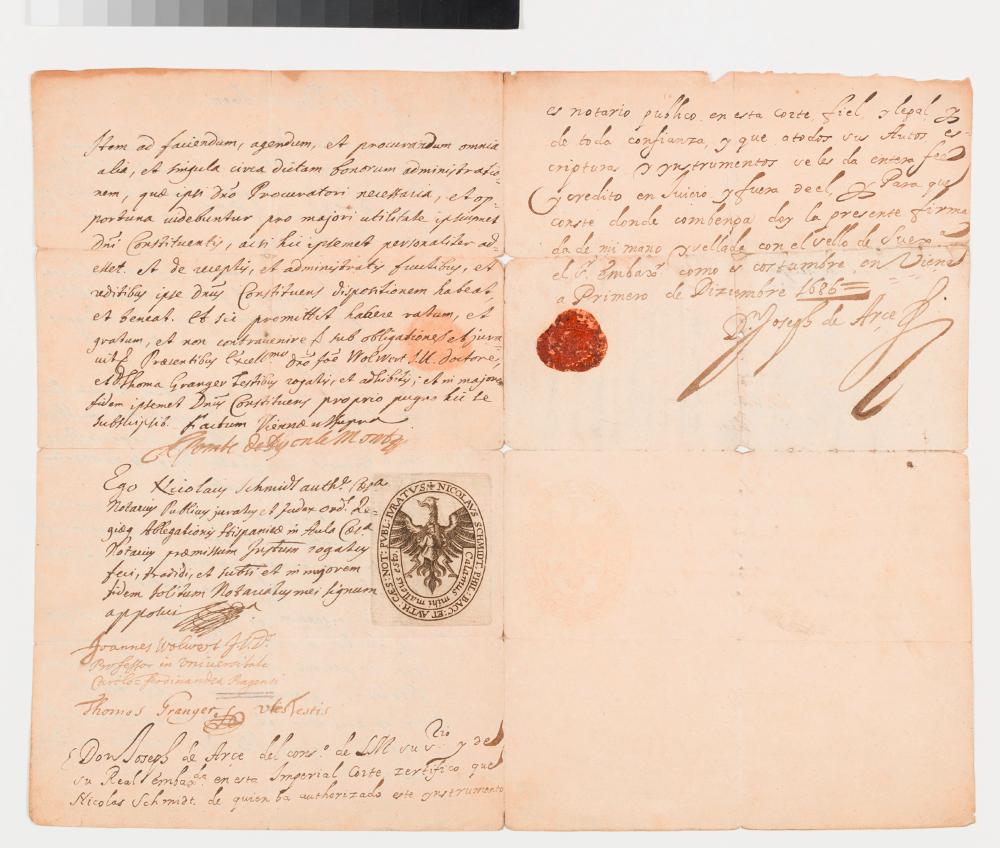 Item ad faciendum, agendum, et procurandum omnia
alia, et singula circa dictam bonorum administratio-
nem, quæ ipsi Dnõ Procuratori necessaria, et op-
portuna videbuntur pro majori utilitate ipsiusmet
Dnĩ Constituentis, ac si hic ipsemet personaliter ad-
esset. Et de receptis, et administratis fructibus, et
reditibus ipse Dnũs Constituens dispositionem habeat,
et teneat. Et sic promittit habere ratum, et
gratum, et non contravenire sub obligatione et jura-
Præsentibus Excell.mo Dnõ Joẽ Wolwert J.U. Doctore,
et D Thoma Granger testibus rogatis, et adhibitis; et in majorē
fidem ipsemet Dnũs Constituens proprio pugno hic se
subscripsit. Factum Viennæ ut supra
Ego Nicolaus Schmidt auth. Cæsa
Notarius Publicus juratus et Judex ord. Re-
giæq Ablegationis Hispanicæ in Aula Cæs.a
Notarius præmissum Instrum rogatus
feci, tradidi, et subscr et in majorem
fidem solitum Notariatus mei signum
apposui
NICOLAVS SCHMIDT PHIL: BACC: ET AVTH: CÆS: NOT: PVBL: IVRATVS
Calamus mihi malleus esto.
Joannes Wolwert J.U.Dr
Professor in Universitate
Carolo-Ferdinandea Pragensi
Thomas Granger uti Testis
Don Joseph de Arçe del cons.o de S.M su s.rio y de
su Real embax.da en esta Imperial Corte, zertifico que
Nicolas Schmidt de quien ba authorizado este ynstrumento
es notario publico en esta corte fiel, y legal
de toda confianza, y que atodos sus Autos es-
cripturas y ynstrumentos se les da entera fee
y credito en Juicio y fuera de el, Para que
conste donde combenga doy la presente firma
da de mi mano y sellada con el sello de
el s.r embax.or como es costumbre en Viena
a Primero de Diziembre 1686
D.n Joseph de Arçe